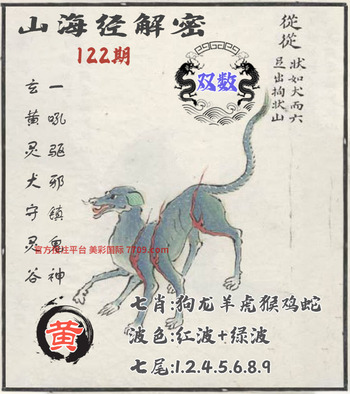 山海经解密
122期
双数
從從
狀如犬而六
足出枸狀山
一吼驱邪镇鬼神
玄黄灵犬守灵谷
官方授柱平台 美彩国际 7709.com
黄
七肖:狗龙羊虎猴鸡蛇
波色:红波+绿波
七尾:1.2.4.5.6.8.9